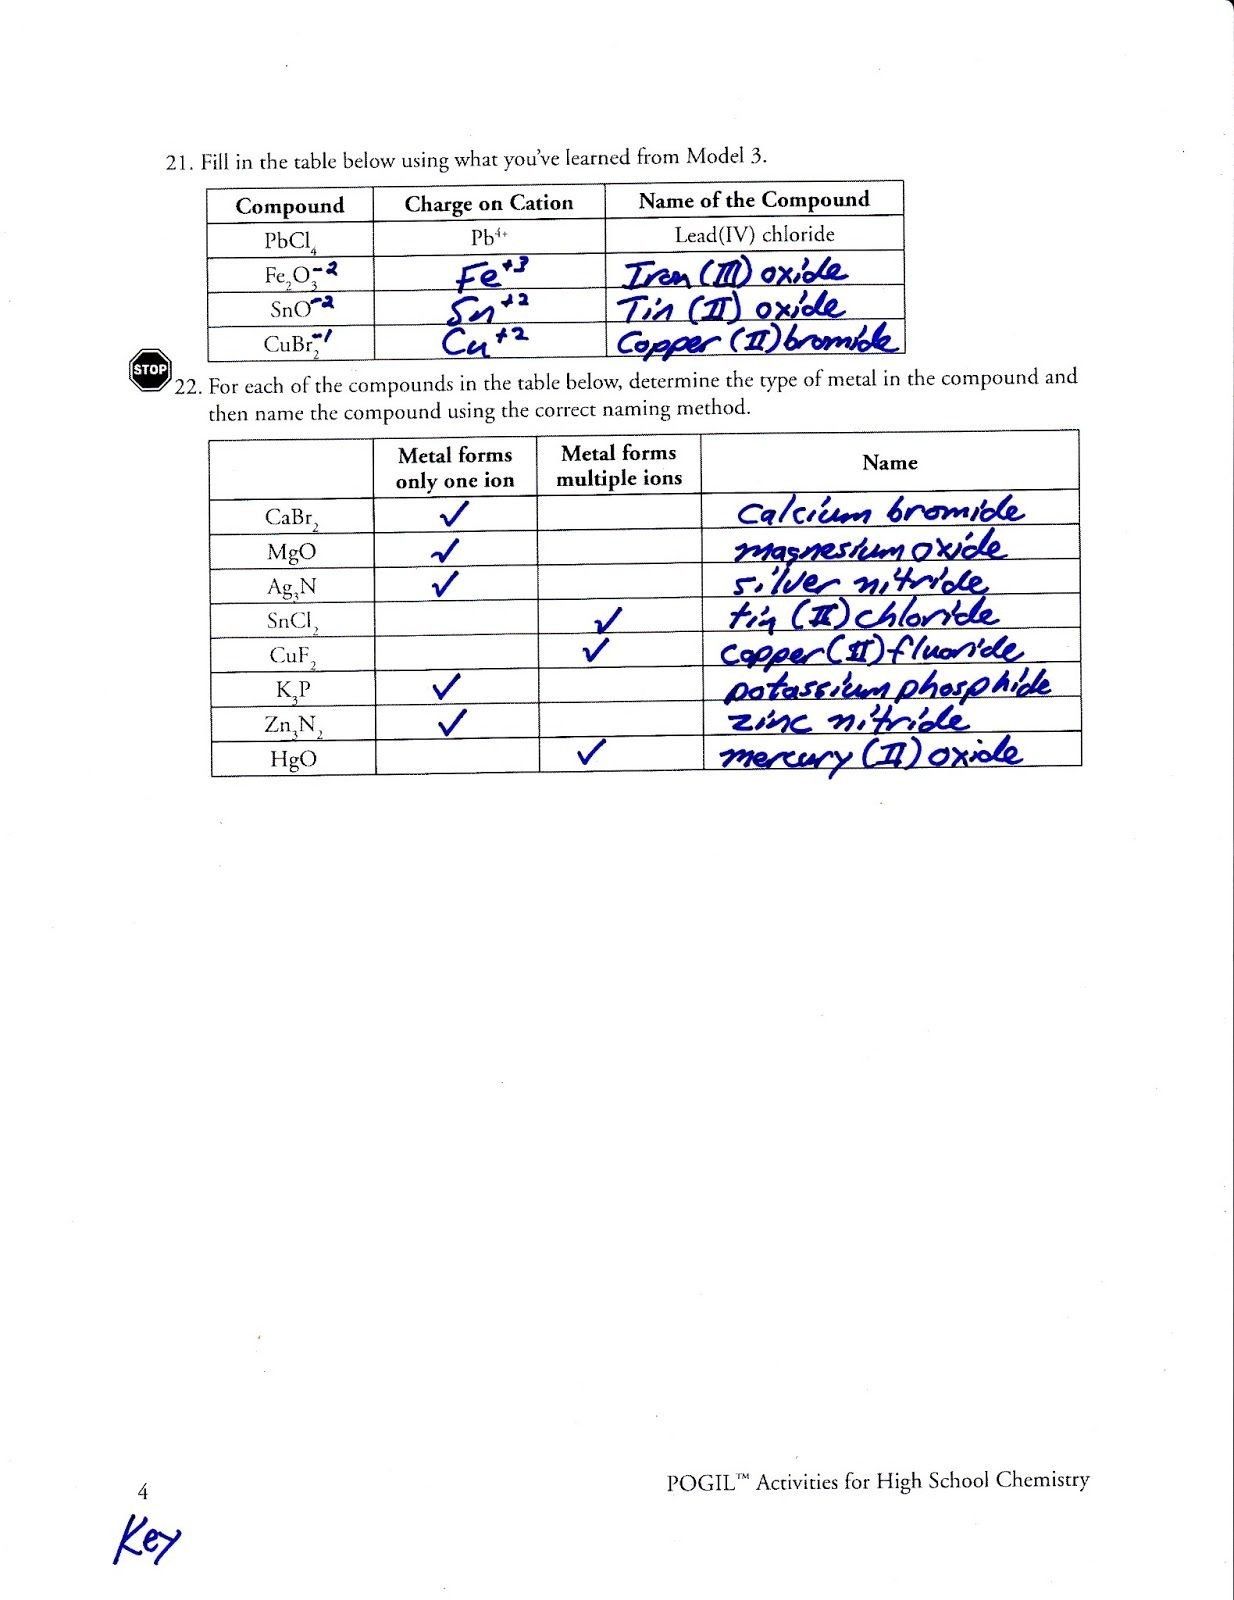 21. Fill in the table below using what you've learned from Model 3.
Compound Charge on Cation Name of the Compound
PbCl₄ Pb⁴⁺ Lead(IV) chloride
Fe₂O₃⁻² Fe⁺³ Iron (III) oxide
SnO⁻² Sn⁺² Tin (II) oxide
CuBr₂⁻¹ Cu⁺² Copper (II) bromide
STOP
22. For each of the compounds in the table below, determine the type of metal in the compound and
then name the compound using the correct naming method.
Metal forms Metal forms Name
only one ion multiple ions
CaBr₂ ✓ calcium bromide
MgO ✓ magnesium oxide
Ag₃N ✓ silver nitride
SnCl₂ ✓ tin (II) chloride
CuF₂ ✓ copper (II) fluoride
K₃P ✓ potassium phosphide
Zn₃N₂ ✓ zinc nitride
HgO ✓ mercury (II) oxide
4 POGIL™ Activities for High School Chemistry
Key